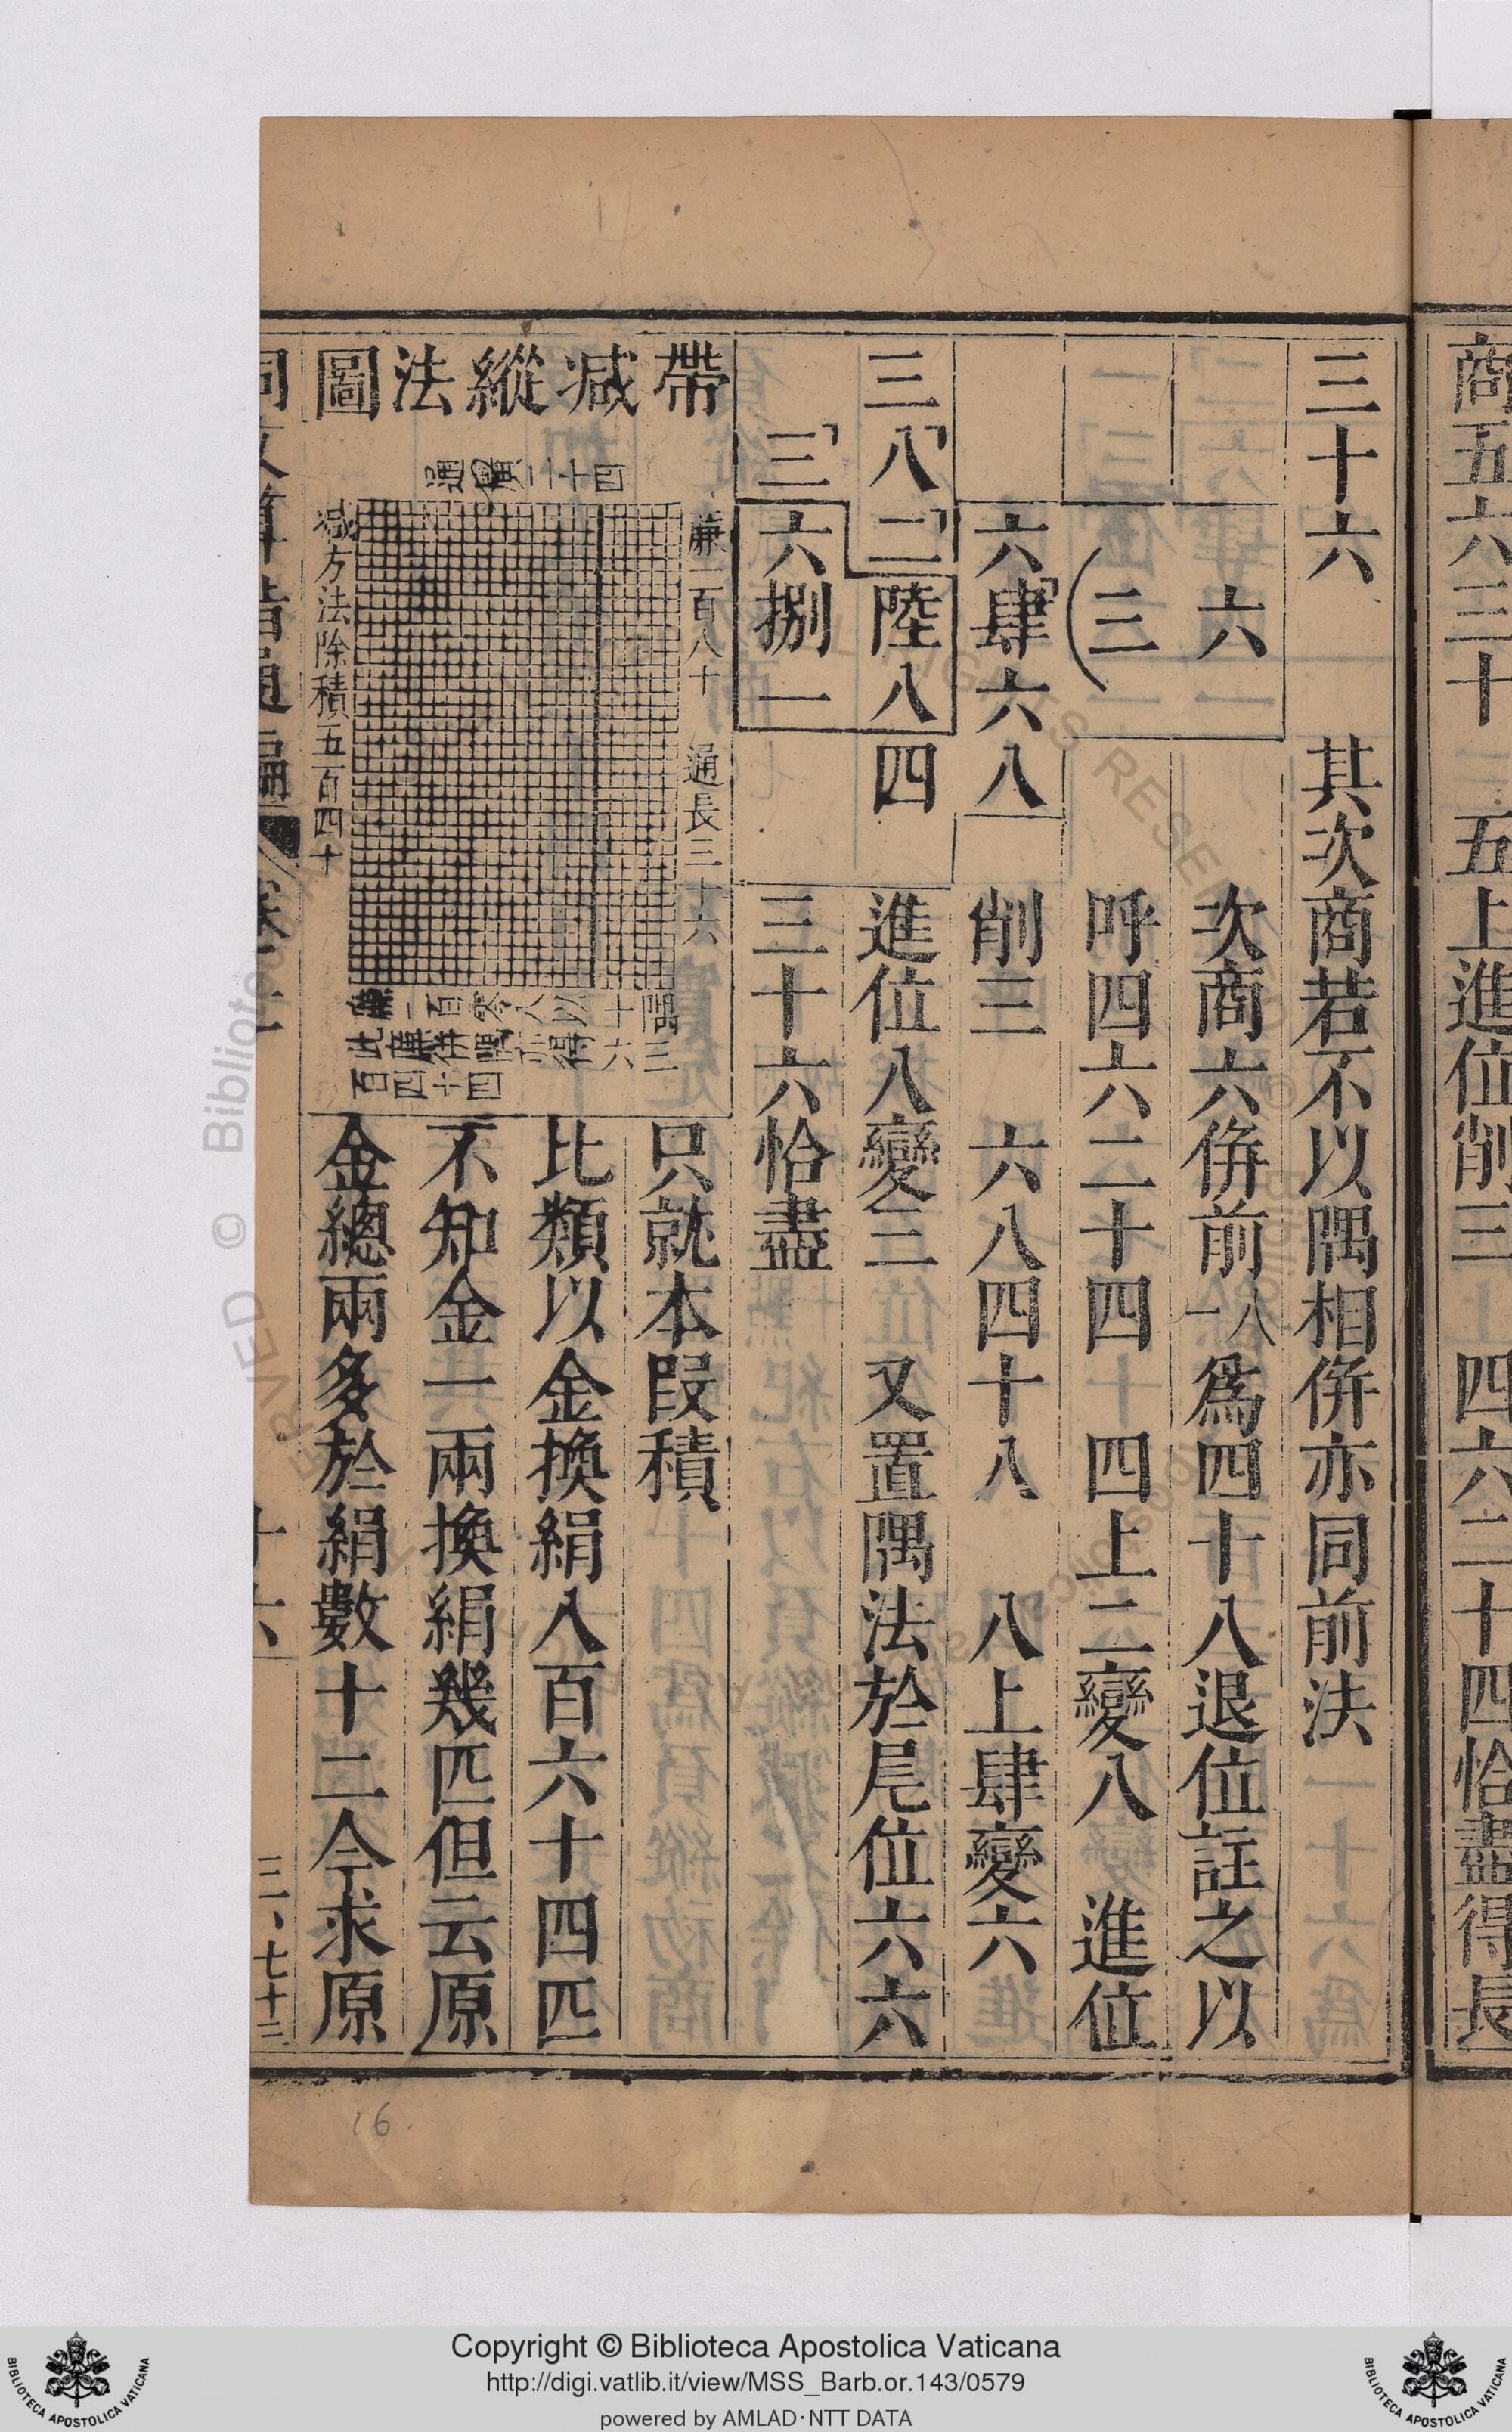 商五六三十　五上進位削三　四六二十四恰盡得長
三十六
其次商若不以隅相併亦同前法
六
次商六併前一八爲四十八退位註之以
三
呼四六二十四　四上二變八　進位
六肆六八
削三　六八四十八　八上肆變六
三八二陸八四
進位八變三　又置隅法於尾位六六
三六捌一
三十六恰盡
帶减縱法圖
濶廣二十四
蕭一百八十　通長三十六
减方法除積五百四十
只就本段積
比類以金換絹八百六十四匹
不知金一兩換絹幾匹但云原
金總兩多於絹數十二今求原
十六
三、七十三
16
Copyright © Biblioteca Apostolica Vaticana
http://digi.vatlib.it/view/MSS_Barb.or.143/0579
powered by AMLAD·NTT DATA
BIBLIOTECA APOSTOLICA VATICANA
BIBLIOTECA APOSTOLICA VATICANA